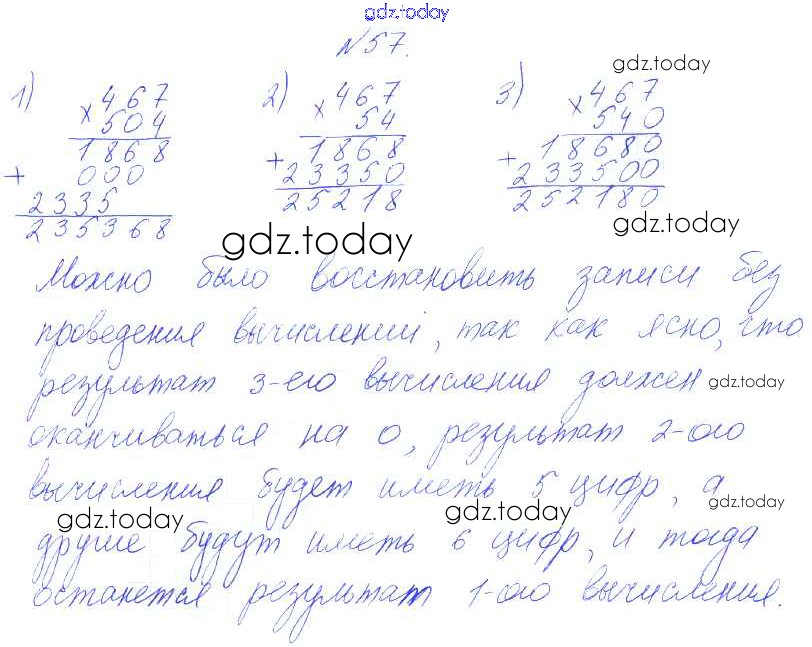 gdz.today
№57.
gdz.today
1) 2) 3)
467 467 467
× 504 × 54 × 540
1868 1868 18680
+ 000 + 23350 + 233500
2335 25218 252180
235368
gdz.today
gdz.today
Можно было восстановить записи без
проведения вычислений, так как ясно, что
результат 3-его вычисления должен
gdz.today
оканчиваться на 0, результат 2-ого
вычисления будет иметь 5 цифр, а
gdz.today
gdz.today
gdz.today
другие будут иметь 6 цифр, и тогда
останется результат 1-ого вычисления.